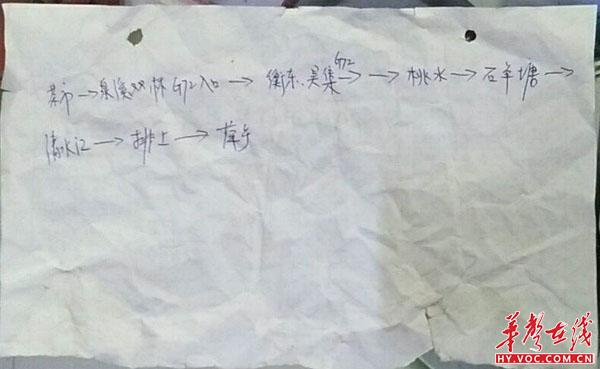 菜市→泉溪双林G72入口→衡东、吴集G72→→桃水→石羊塘→
清水江→排上→萍乡
华声在线
HY.VOC.COM.CN